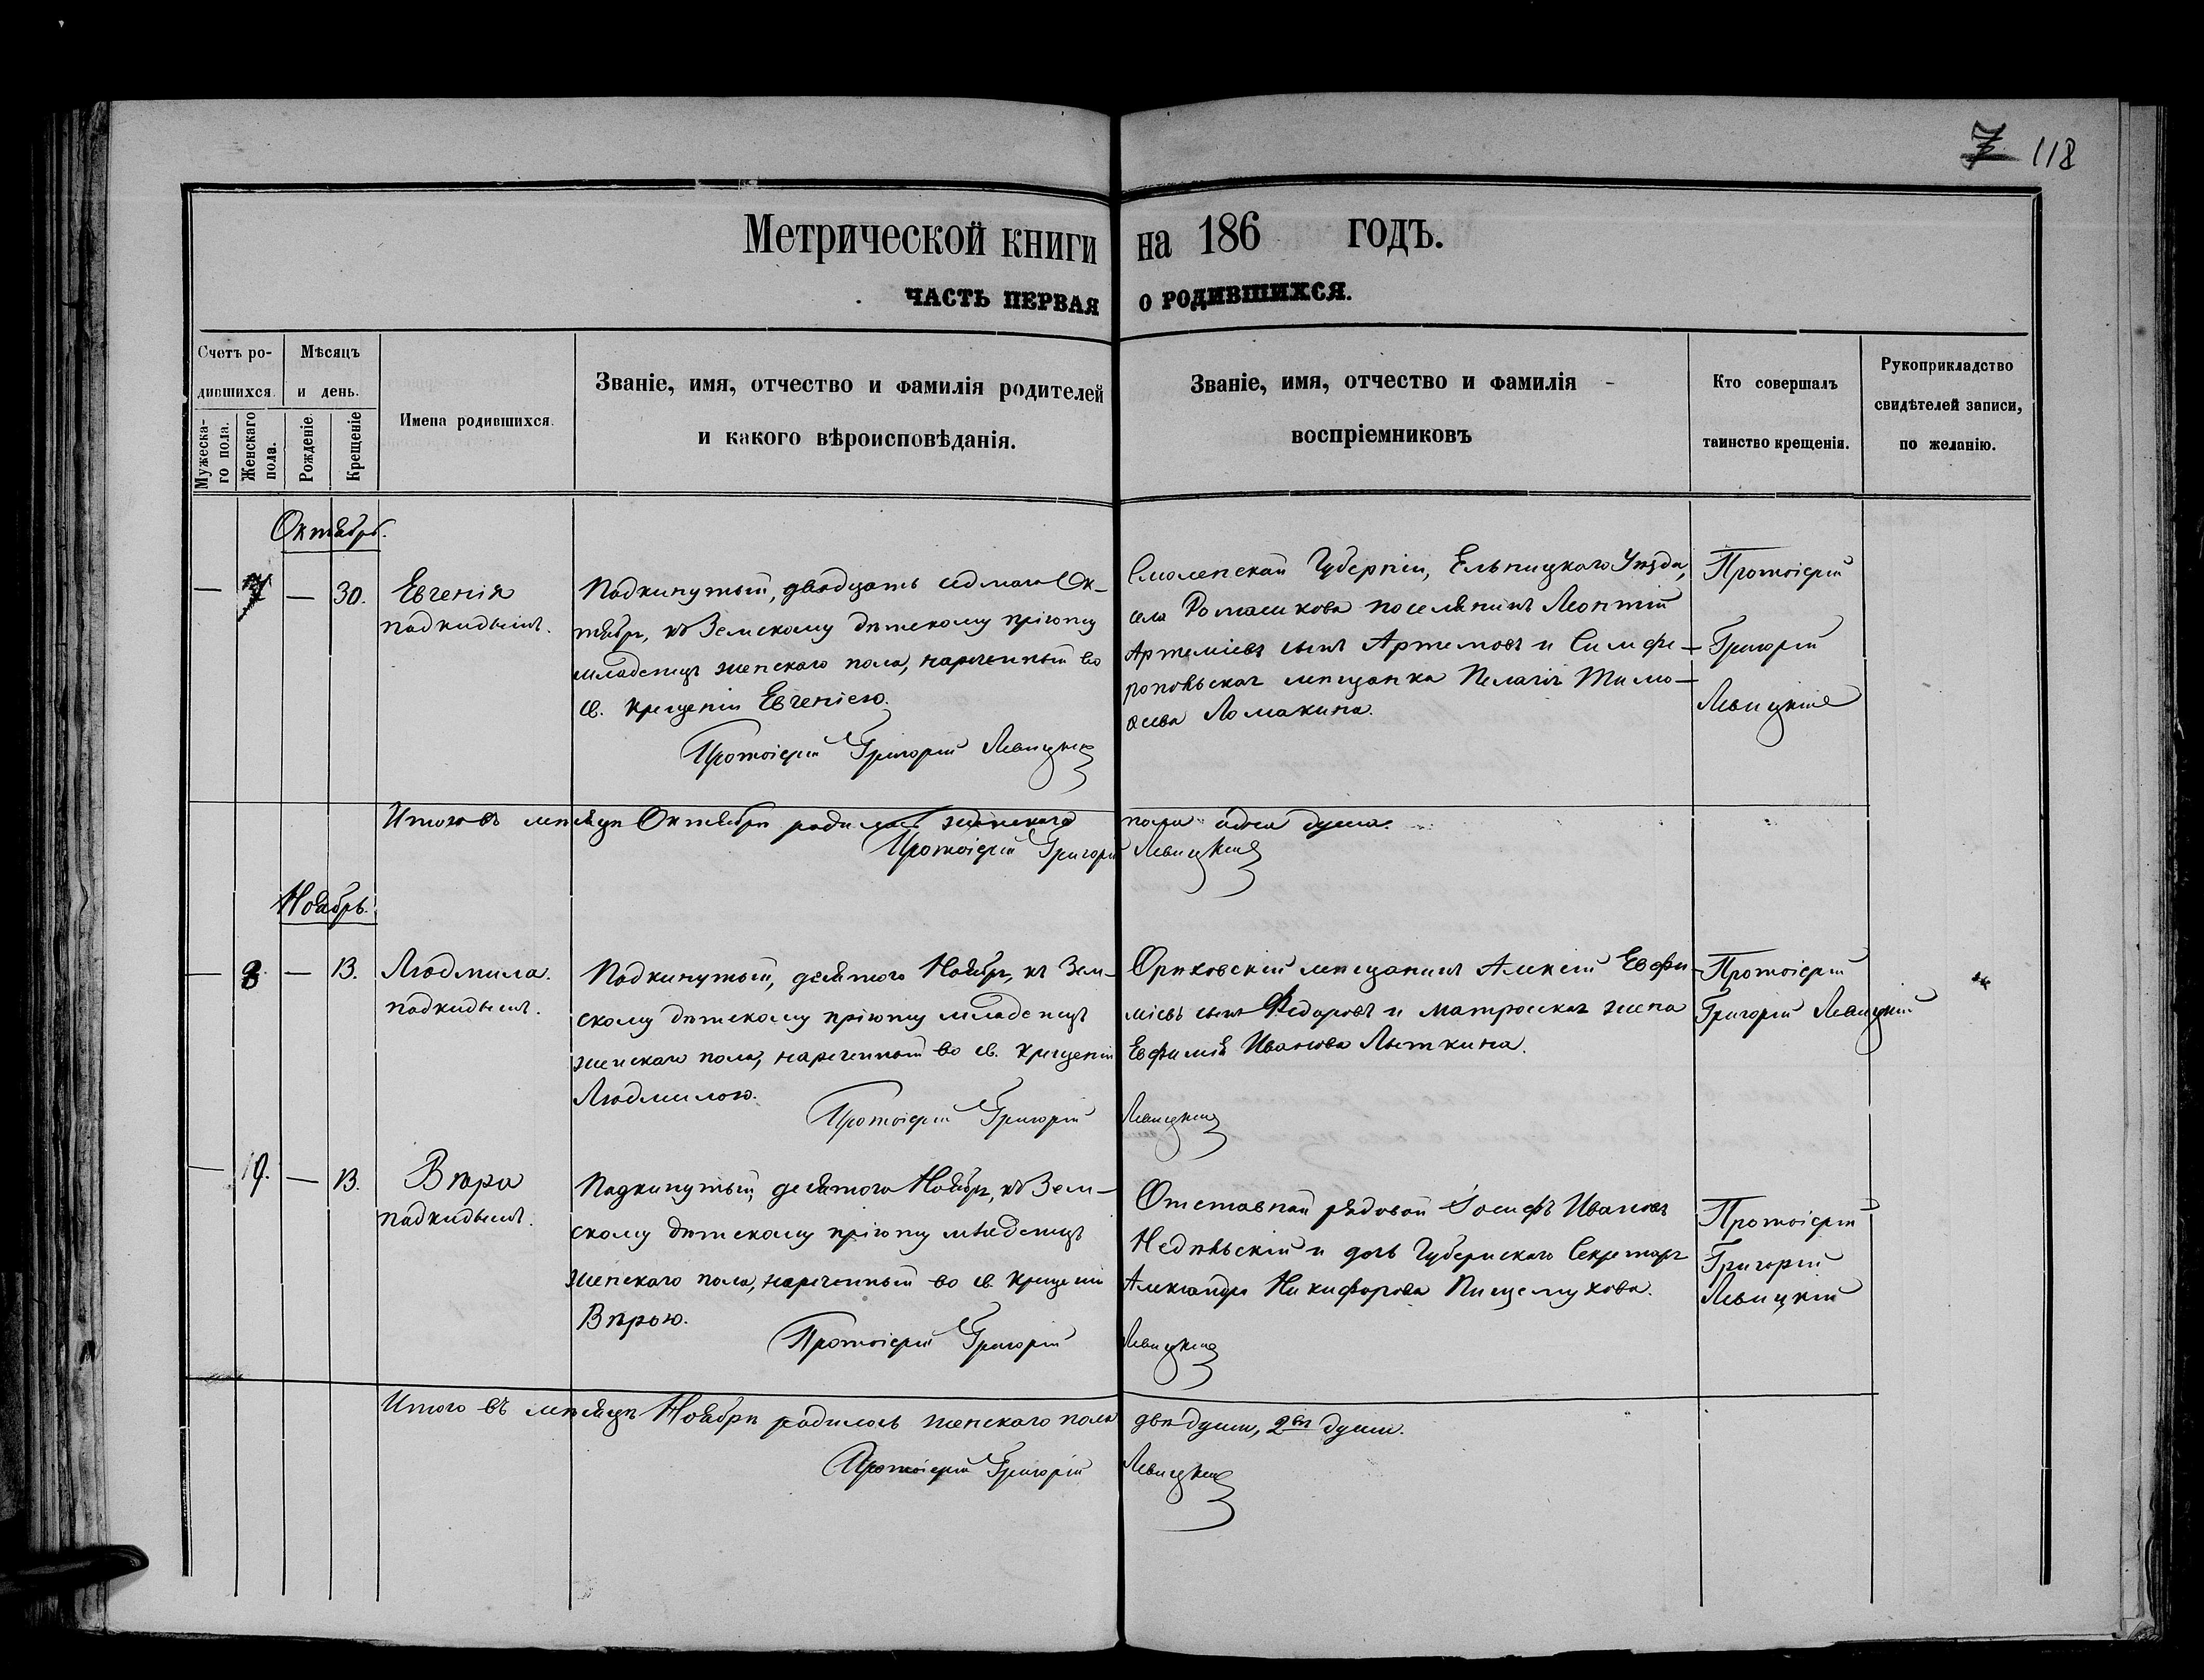 7 118
Метрической книги на 186 годъ.
ЧАСТЬ ПЕРВАЯ О РОДИВШИХСЯ.
Счетъ ро-
дившихся.
Мужеска-
го пола.
Женскаго
пола.
Мѣсяцъ
и день.
Рожденіе.
Крещеніе
Имена родившихся.
Званіе, имя, отчество и фамилія родителей
и какого вѣроисповѣданія.
Званіе, имя, отчество и фамилія
воспріемниковъ
Кто совершалъ
таинство крещенія.
Рукоприкладство
свидѣтелей записи,
по желанію.
Октябрь.
— 7 — 30.
Евгенія
подкидышъ.
Подкинутый, двадцать седмаго Ок-
тября, къ Земскому дѣтскому пріюту
младенецъ женскаго пола, нареченный во
св. крещеніи Евгеніею.
Протоіерей Григорій Левицкій
Смоленской Губерніи, Ельницкаго Уѣзда,
села Ромашкова поселянинъ Леонтій
Артеміевъ сынъ Артемовъ и Симфе-
ропольская мѣщанка Пелагія Тимо-
ѳеева Ломакина.
Протоіерей
Григорій
Левицкій
Итого въ мѣсяцѣ Октябрѣ родилась женскаго пола одна душа.
Протоіерей Григорій Левицкій
Ноябрь.
— 8 — 13.
Людмила.
подкидышъ.
Подкинутый, десятого Ноября, къ Зем-
скому дѣтскому пріюту младенецъ
женскаго пола, нареченный во св. крещеніи
Людмилою.
Протоіерей Григорій Левицкій
Орѣховскій мѣщанинъ Алексій Евфи-
міевъ сынъ Федоровъ и матросская жена
Евфимія Иванова Лыткина.
Протоіерей
Григорій Левицкій
— 9. — 13.
Вѣра
подкидышъ.
Подкинутый, десятого Ноября, къ Зем-
скому дѣтскому пріюту младенецъ
женскаго пола, нареченный во св. крещеніи
Вѣрою.
Протоіерей Григорій Левицкій
Отставной рядовой Іосифъ Ивановъ
и дочь Губернскаго Секретаря
Александра Никифорова
Протоіерей
Григорій
Левицкій
Итого въ мѣсяцѣ Ноябрѣ родилось женскаго пола двѣ души, 2вѣ души.
Протоіерей Григорій Левицкій